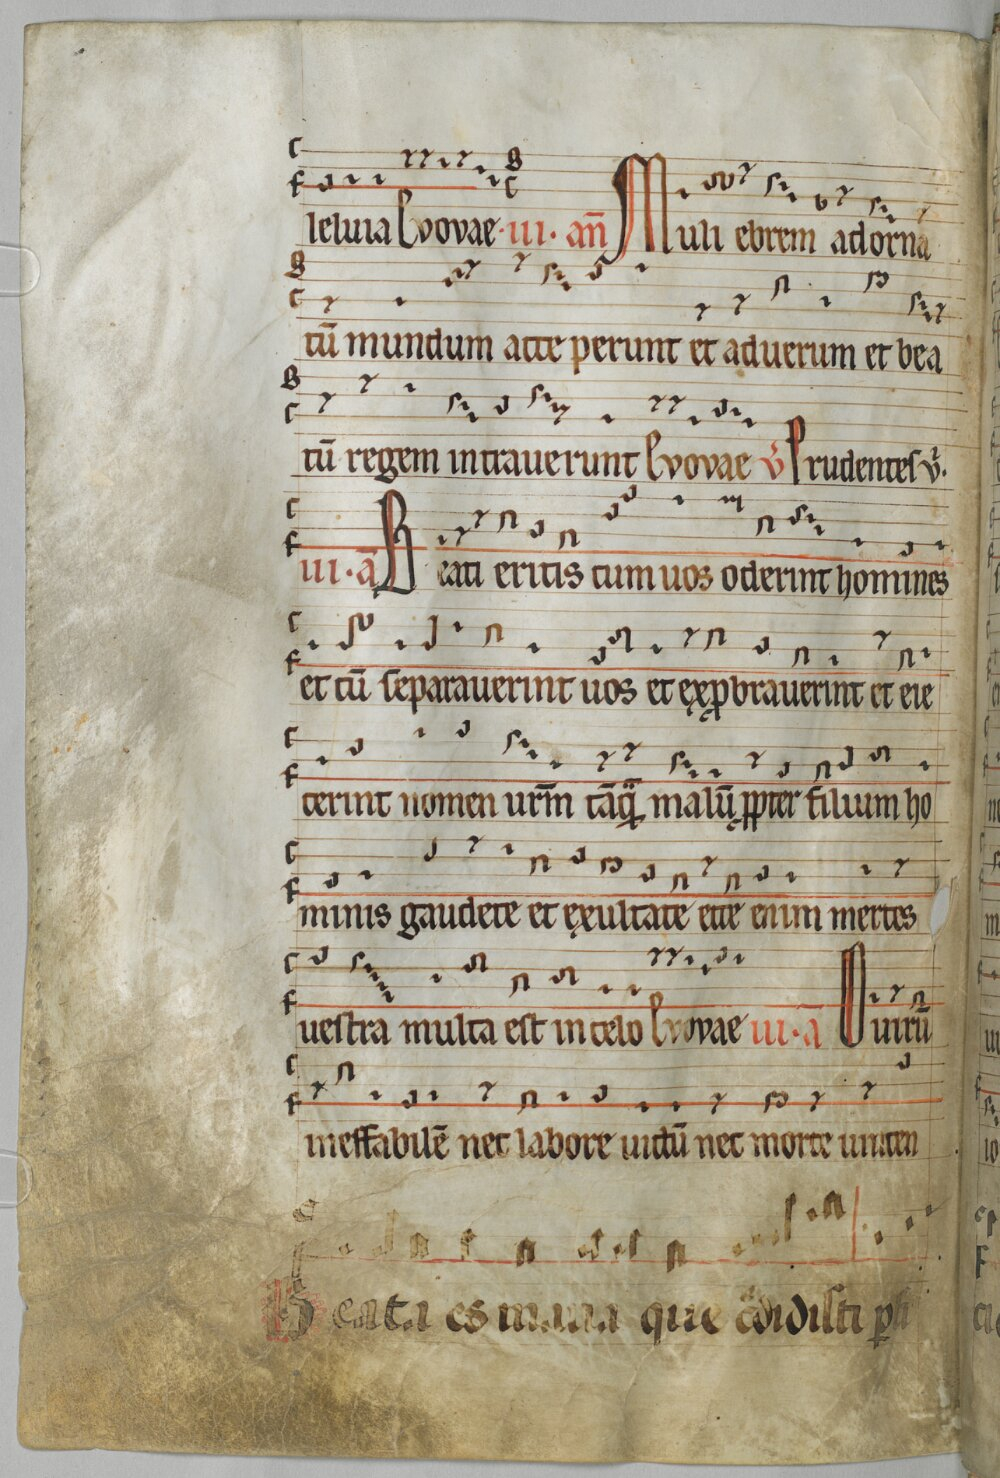 leluia Evovae · iii · an̄ Muli ebrem adorna
tū mundum acce perunt et aduerum et bea
tū regem intrauerunt Evovae v̄ Prudentes v̄.
iii · ā Beati eritis cum uos oderint homines
et cū separauerint uos et exprobrauerint et eie
cerint nomen urm̄ tāq̄ malū ppter filium ho
minis gaudete et exultate ecce enim merces
uestra multa est in celo Evovae iii · ā O uirū
ineffabilē nec labore uictū nec morte uincen
Beata es maria que c̄didisti